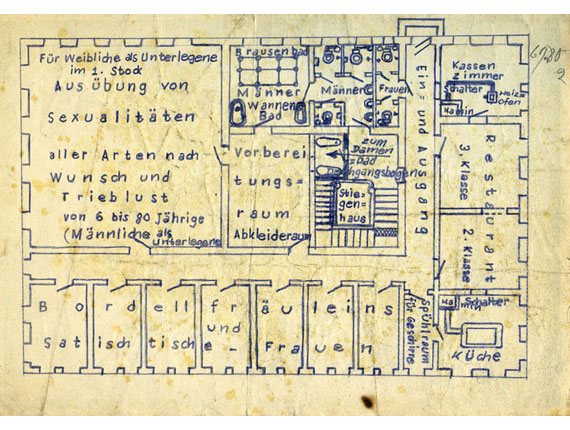 Für Weibliche als Unterlegene
im 1. Stock
Ausübung von
Sexualitäten
aller Arten nach
Wunsch und
Trieblust
von 6 bis 80 Jährige
(Männliche als
unterlegene
Brausenbad
Männer
Wannen
Bad
Männer
Frauen
Vorberei
tungs=
raum
Abkleideraum
zum
Damen
=Bad
Stie=
gen=
haus
Ein= und Ausgang
Kassen
zimmer
Schalter
Heiz=
Ofen
Kamin
Restaurant
3. Klasse
2. Klasse
Ka
min
Schalter
Küche
Spühlraum
für Geschirre
Bordellfräuleins
und
Satistische-Frauen
6780
2